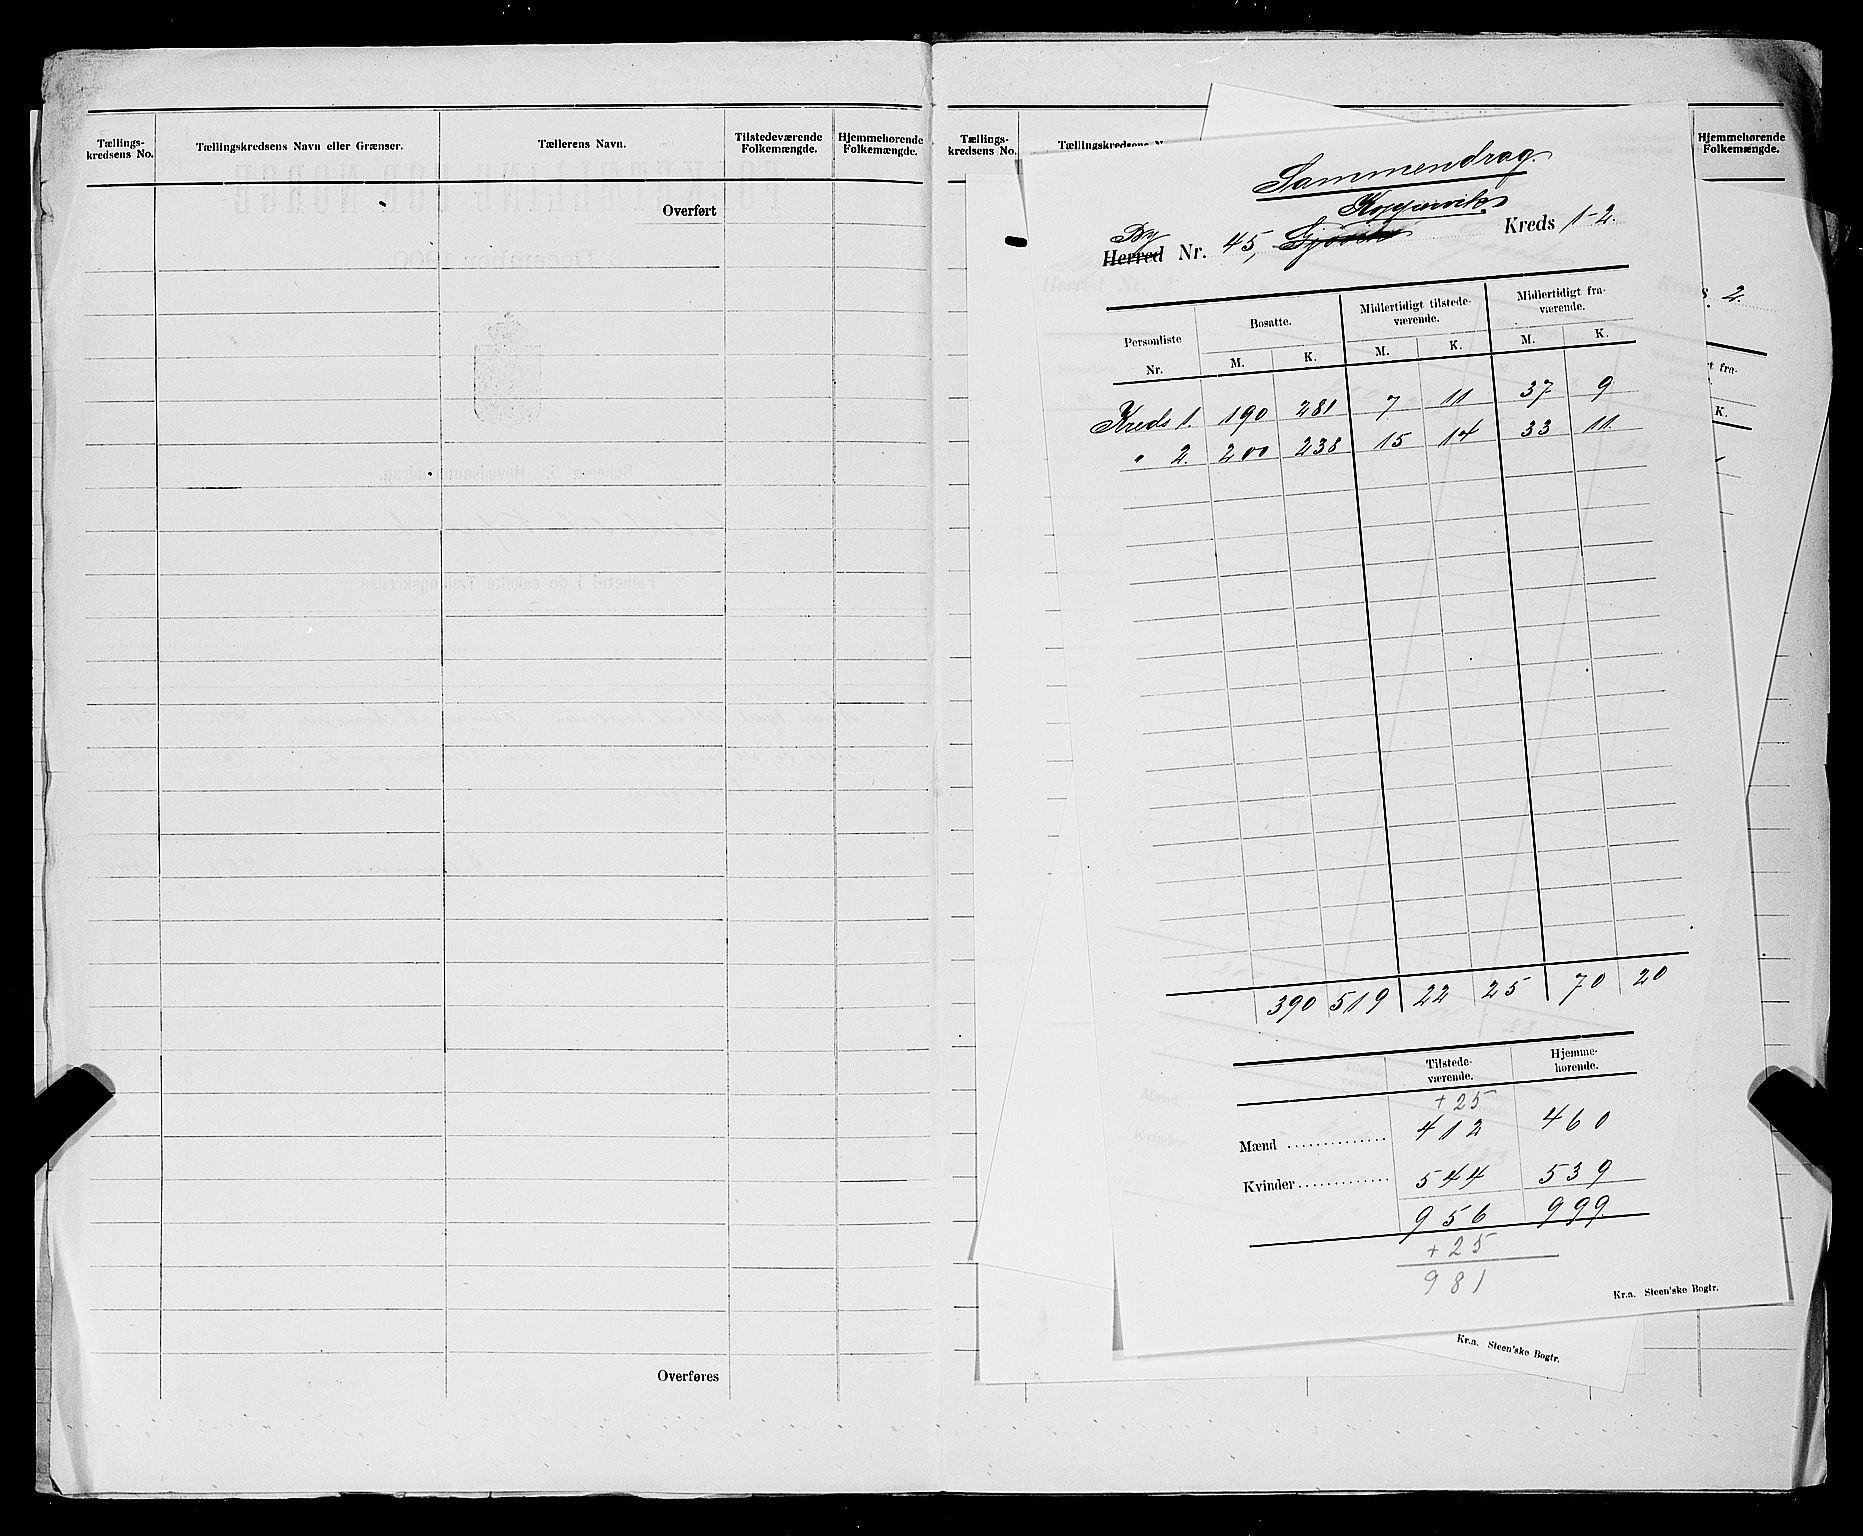 Tællings-
kredsens No.
Tællingskredsens Navn eller Grænser.
Tællerens Navn.
Tilstedeværende
Folkemængde.
Hjemmehørende
Folkemængde.
Overført
Overføres
Tællings-
kredsens No.
Hjemmehørende
Folkemængde.
Sammendrag.
Kopervik
By
Herred Nr. 45, Gjøvik Kreds 1-2.
Personliste
Nr.
Bosatte.
Midlertidigt tilstede-
værende.
Midlertidigt fra-
værende.
M. K. M. K. M. K.
Kreds 1. 190 281 7 11 37 9
" 2. 200 238 15 14 33 11
390 519 22 25 70 20
Tilstede-
værende.
Hjemme-
hørende.
+ 25
Mænd 412 460
Kvinder 544 539
956 999.
+ 25
981
Kr.a. Steen'ske Bogtr.
2.
K.
Kr.a. Steen'ske Bogtr.